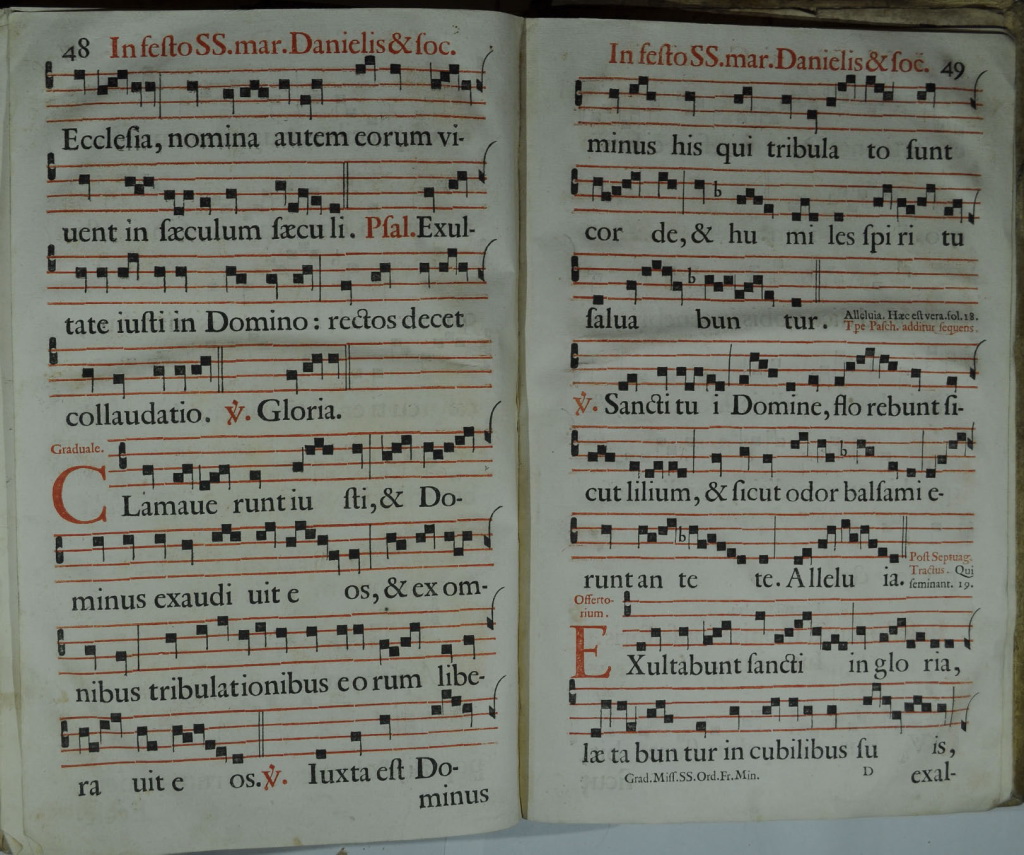 48 In feſto SS. mar. Danielis & ſoc.
Eccleſia, nomina autem eorum vi-
uent in ſæculum ſæcu li. Pſal. Exul-
tate iuſti in Domino: rectos decet
collaudatio. ℣. Gloria.
Graduale.
CLamaue runt iu ſti, & Do-
minus exaudi uit e os, & ex om-
nibus tribulationibus eorum libe-
ra uit e os. ℣. Iuxta eſt Do-
minus
In feſto SS. mar. Danielis & ſoc. 49
minus his qui tribula to ſunt
cor de, & hu mi les ſpi ri tu
ſalua bun tur. Alleluia. Hæc eſt vera. fol. 18.
Tpe Paſch. additur ſequens.
℣. Sancti tu i Domine, flo rebunt ſi-
cut lilium, & ſicut odor balſami e-
runt an te te. Allelu ia. Poſt Septuag.
Tractus. Qui
ſeminant. 19.
Offerto-
rium.
EXultabunt ſancti in glo ria,
læ ta bun tur in cubilibus ſu is,
Grad. Miſſ. SS. Ord. Fr. Min. D exal-